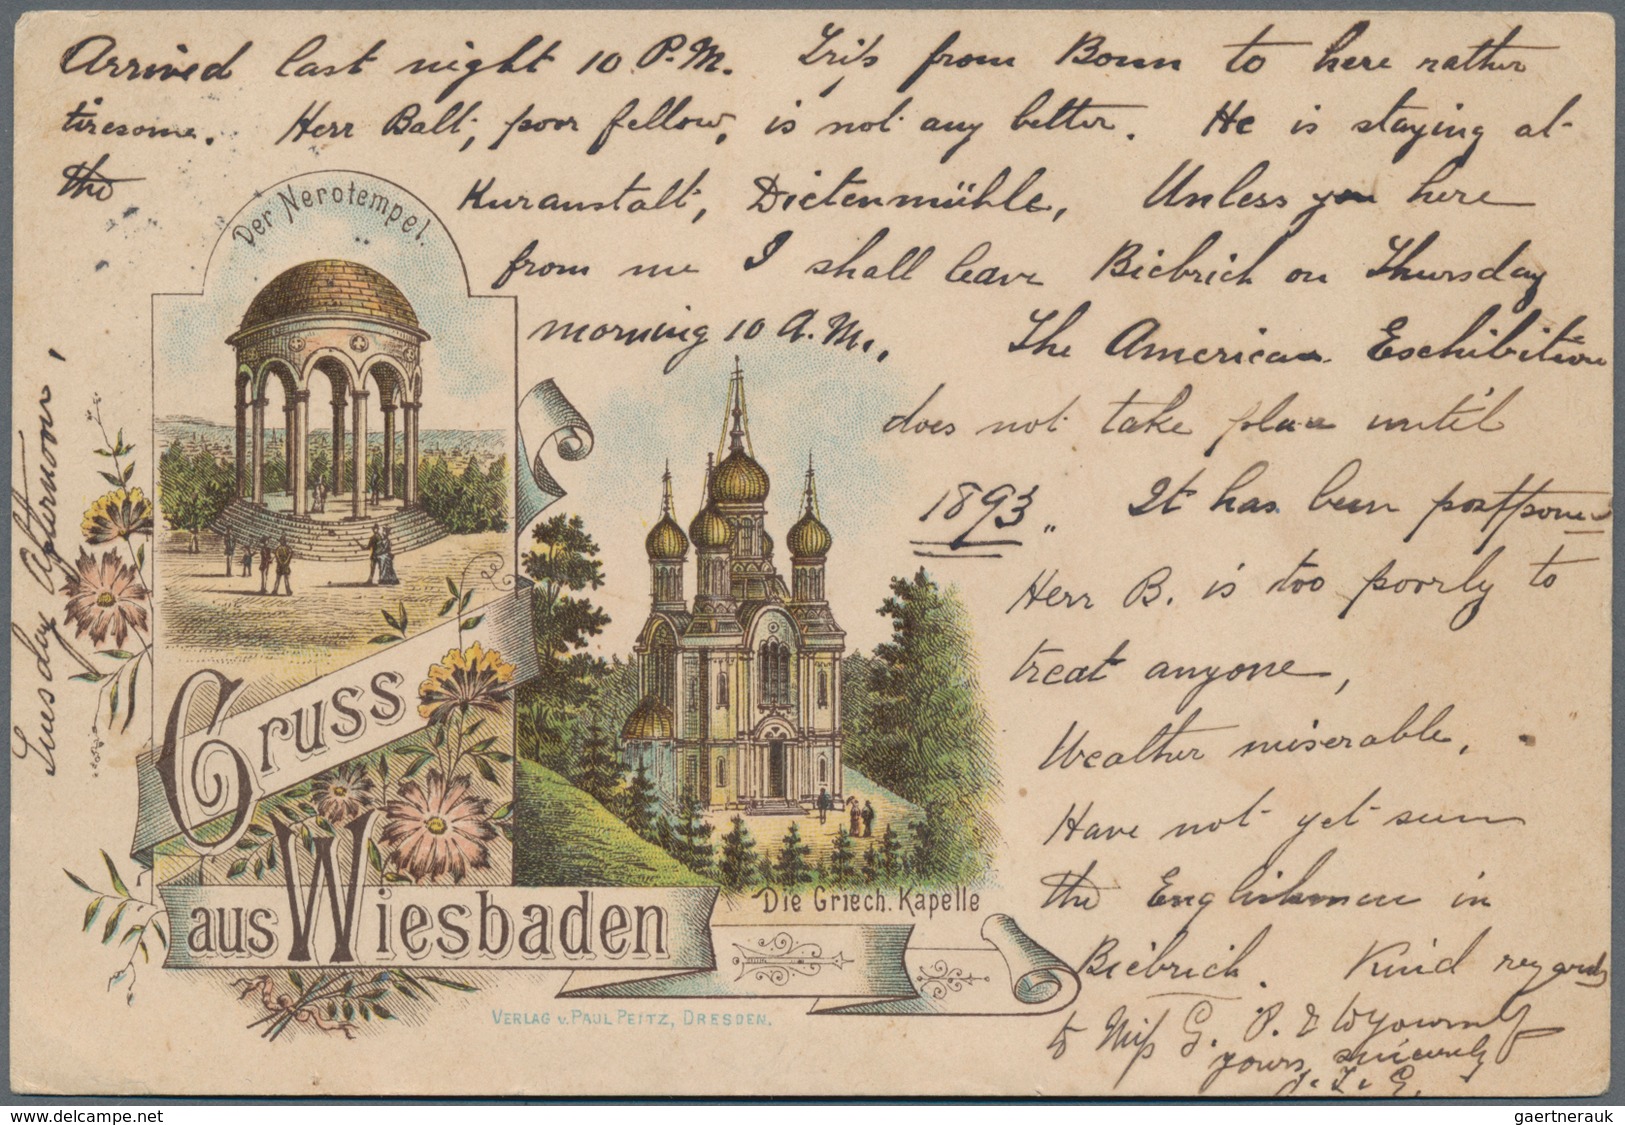 Arrived last night 10 P.M. Trip from Bonn to here rather
tiresome. Herr Balt, poor fellow, is not any better. He is staying at
the Kuranstalt, Dietenmühle, Unless you here
from me I shall leave Biebrich on Thursday
morning 10 A.M.. The American Eschibition
does not take place until
1893 It has been postpone
Herr B. is too poorly to
treat anyone,
Weather miserable.
Have not yet seen
the Englishman in
Biebrich. Kind regards
to Miss G. P. & to yourself
yours sincerely
Tuesday Afternoon,
Der Nerotempel.
Gruss
aus Wiesbaden
Die Griech. Kapelle
VERLAG v. PAUL PEITZ, DRESDEN.
www.delcampe.net
gaertnerauk